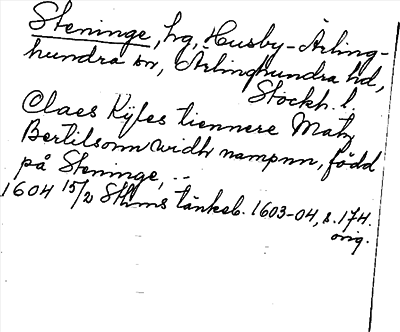 Steninge, hg, Husby-Ärling-
hundra sn, Ärlinghundra hd,
Stockh. l.
Claes Kÿfes tiennere Matz
Bertilsonn widh nampnn, född
på Steninge, --
1604 15/2 Sthms tänkeb. 1603-04, s. 174.
orig.